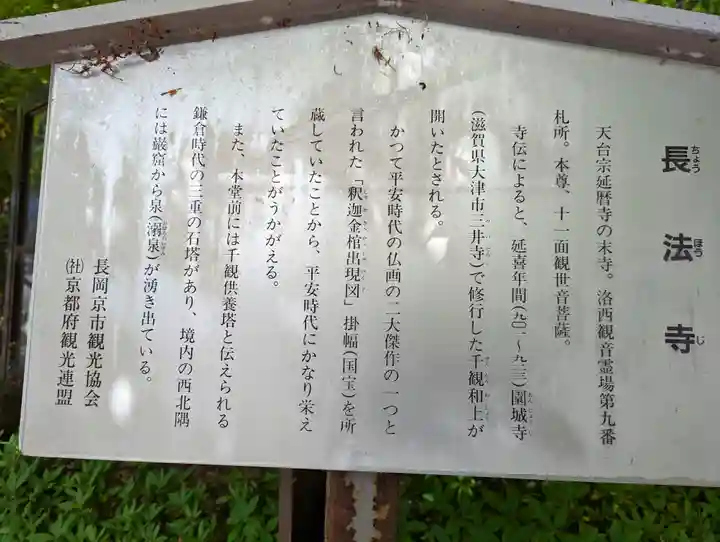 長法寺
ちょうほうじ
天台宗延暦寺の末寺。洛西観音霊場第九番
札所。本尊、十一面観世音菩薩。
寺伝によると、延喜年間(九〇一〜九二三)園城寺
(滋賀県大津市三井寺)で修行した千観和上が
開いたとされる。
かつて平安時代の仏画の二大傑作の一つと
言われた「釈迦金棺出現図」掛幅(国宝)を所
蔵していたことから、平安時代にかなり栄え
ていたことがうかがえる。
また、本堂前には千観供養塔と伝えられる
鎌倉時代の三重の石塔があり、境内の西北隅
には巌窟から泉(溺泉)が湧き出ている。
長岡京市観光協会
㈳京都府観光連盟